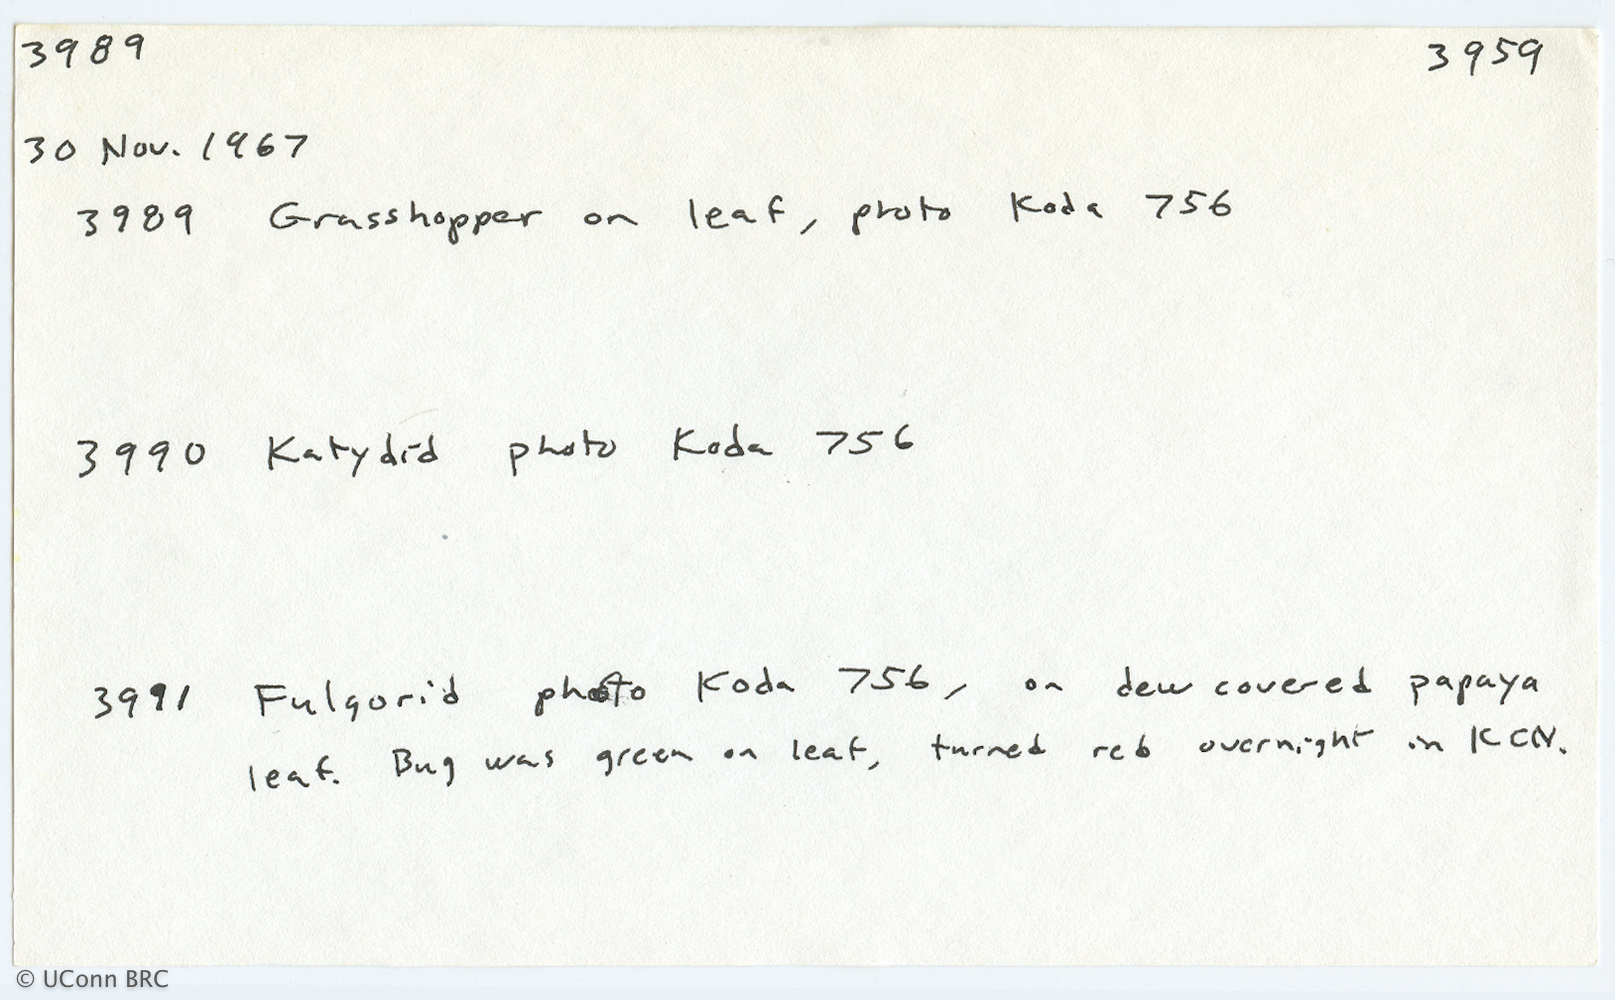 3989 3959
30 Nov. 1967
3989 Grasshopper on leaf, photo Koda 756
3990 Katydid photo Koda 756
3991 Fulgorid photo Koda 756, on dew covered papaya
leaf. Bug was green on leaf, turned red overnight in KCN.
© UConn BRC